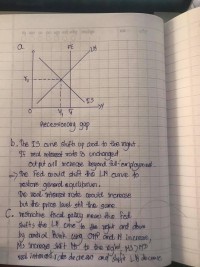 a.
r
FE
LM
r₁
IS
Y₁ Y̅ Y
Recessionary gap
b. The IS curve shift up and to the right.
If real interest rate is unchanged
output will increase beyond full-employment.
=> the Fed could shift the LM curve to
restore general equilibrium.
the real interest rate would increase
but the price level still the same.
C. restrictive fiscal policy mean the Fed
shifts the LM curve to the right and down
by control
MS increase shift to the right,
real interest rate decrease and shift LM